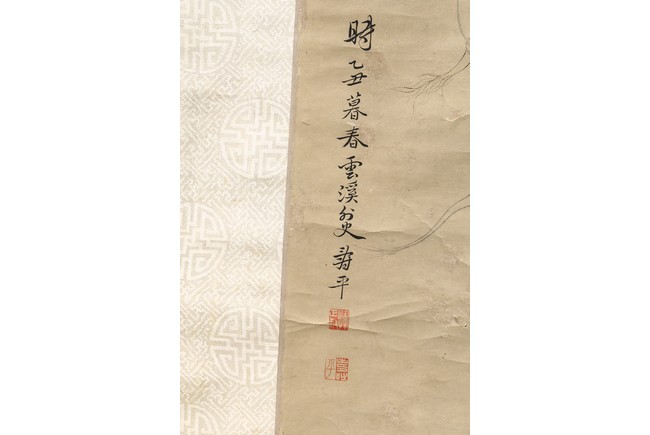 時乙丑暮春雲溪外史壽平